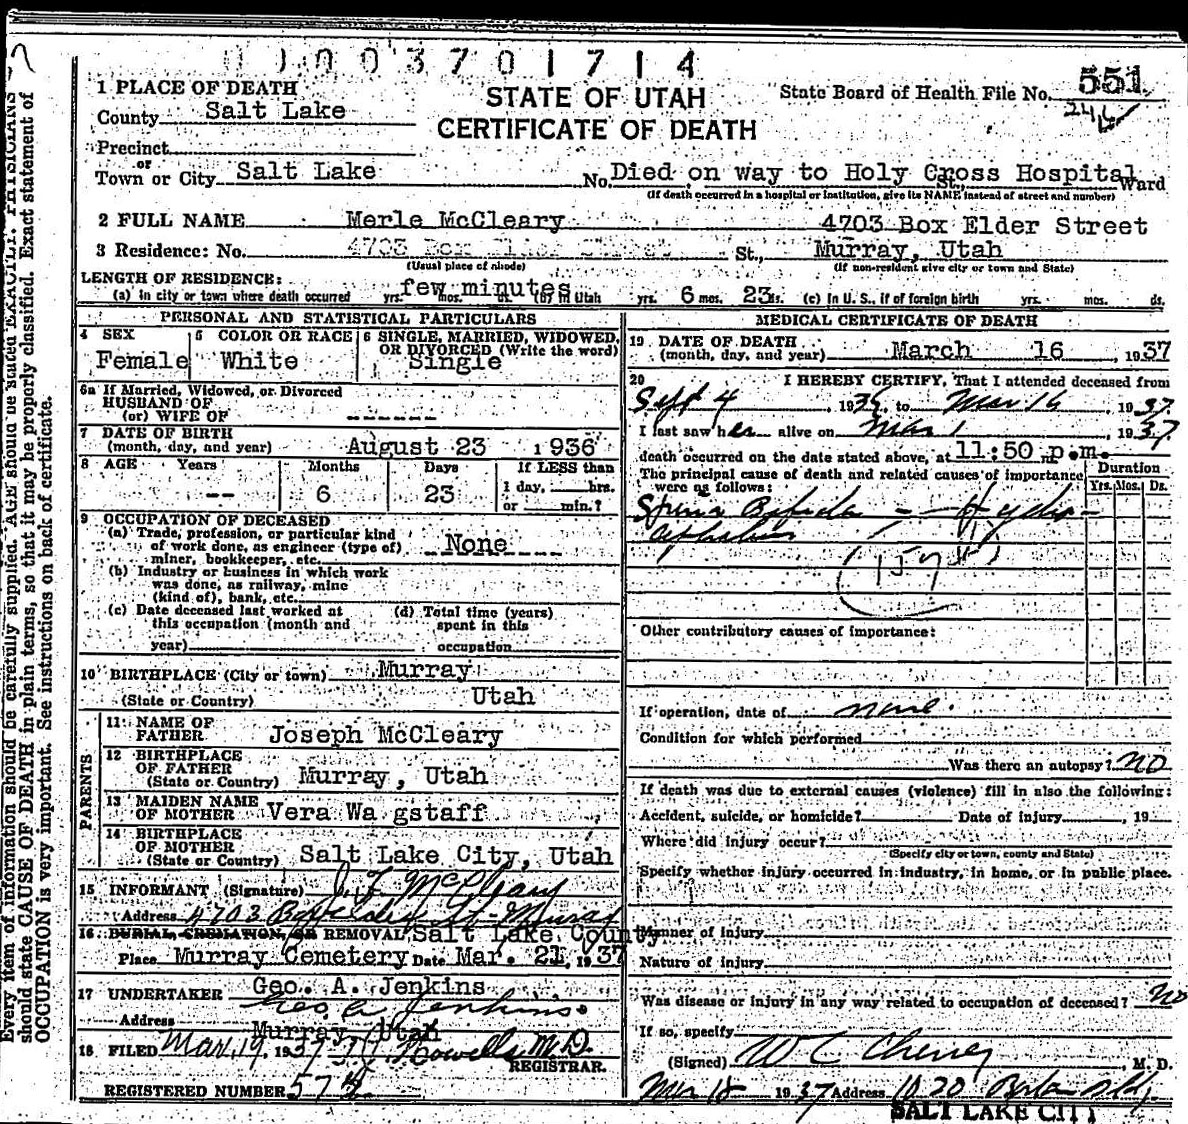 1003701714
1 PLACE OF DEATH
STATE OF UTAH
State Board of Health File No. 551
County Salt Lake
CERTIFICATE OF DEATH
Precinct
or
Town or City Salt Lake No. Died on way to Holy Cross Hospital St., Ward
(If death occurred in a hospital or institution, give its NAME instead of street and number)
2 FULL NAME Merle McCleary 4703 Box Elder Street
3 Residence: No. 4703 Box Elder Street St., Murray, Utah
(Usual place of abode) (If non-resident give city or town and State)
LENGTH OF RESIDENCE: few minutes
(a) In city or town where death occurred yrs. mos. ds. (b) In Utah yrs. 6 mos. 23 ds. (c) In U. S., if of foreign birth yrs. mos. ds.
PERSONAL AND STATISTICAL PARTICULARS
4 SEX 5 COLOR OR RACE 6 SINGLE, MARRIED, WIDOWED, OR DIVORCED (Write the word)
Female White Single
6a If Married, Widowed, or Divorced
HUSBAND OF
(or) WIFE OF ------
7 DATE OF BIRTH
(month, day, and year) August 23 1936
8 AGE Years Months Days If LESS than
-- 6 23 1 day, hrs.
or min.?
9 OCCUPATION OF DECEASED
(a) Trade, profession, or particular kind
of work done, as engineer (type of) None
miner, bookkeeper, etc.
(b) Industry or business in which work
was done, as railway, mine
(kind of), bank, etc.
(c) Date deceased last worked at (d) Total time (years)
this occupation (month and spent in this
year) occupation
10 BIRTHPLACE (City or town) Murray
(State or Country) Utah
PARENTS
11 NAME OF
FATHER Joseph McCleary
12 BIRTHPLACE
OF FATHER
(State or Country) Murray, Utah
13 MAIDEN NAME
OF MOTHER Vera Wa gstaff
14 BIRTHPLACE
OF MOTHER
(State or Country) Salt Lake City, Utah
15 INFORMANT (Signature) J. F. McCleary
Address 4703 Box Elder St - Murray
16 BURIAL, CREMATION, OR REMOVAL Salt Lake County
Place Murray Cemetery Date Mar. 21, 1937
17 UNDERTAKER Geo. A. Jenkins
Geo. A. Jenkins
Address Murray, Utah
18 FILED Mar. 19, 1937 Howells M.D.
REGISTRAR.
REGISTERED NUMBER 57
MEDICAL CERTIFICATE OF DEATH
19 DATE OF DEATH
(month, day, and year) March 16, 1937
20 I HEREBY CERTIFY, That I attended deceased from
Sept 4, 1936, to Mar 16, 1937
I last saw her alive on Mar 1, 1937
death occurred on the date stated above, at 11:50 p.m.
The principal cause of death and related causes of importance
were as follows:
Duration
Yrs. Mos. Ds.
Spina Bifida - Hydro-
cephalus
Other contributory causes of importance:
If operation, date of none.
Condition for which performed
Was there an autopsy? no
If death was due to external causes (violence) fill in also the following:
Accident, suicide, or homicide? Date of injury, 19
Where did injury occur?
(Specify city or town, county and State)
Specify whether injury occurred in industry, in home, or in public place.
Manner of injury
Nature of injury
Was disease or injury in any way related to occupation of deceased? no
If so, specify
(Signed) W C Cheney, M. D.
Mar 18 1937 Address 1020
SALT LAKE CITY
Every item of information should be carefully supplied. AGE should be stated EXACTLY. PHYSICIANS
should state CAUSE OF DEATH in plain terms, so that it may be properly classified. Exact statement of
OCCUPATION is very important. See instructions on back of certificate.